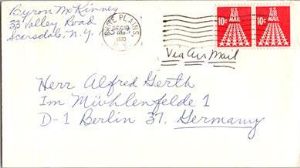 Byron McKinney
33 Valley Road
Scarsdale, N.Y.
PLAINS
10c AIR MAIL
10c AIR MAIL
Via Air Mail
Herr Alfred Gerth
Im Mühlenfelde 1
D-1 Berlin 37. Germany